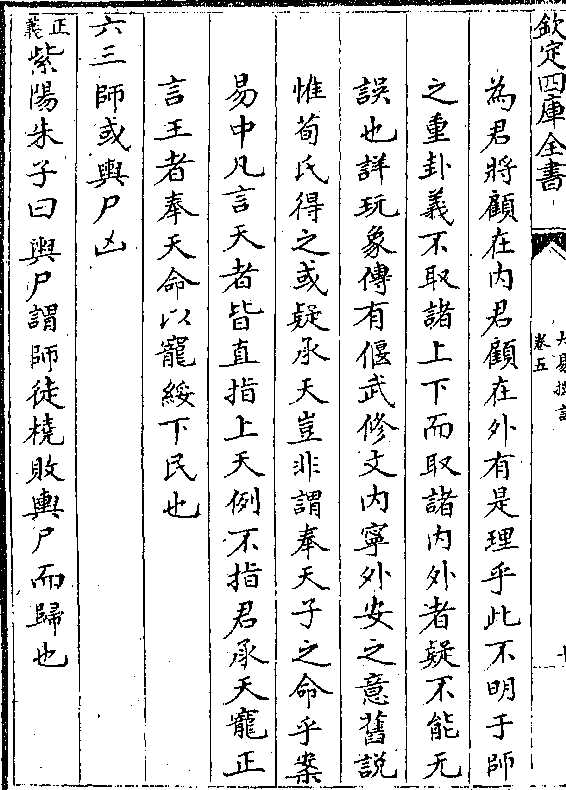 欽定四庫全書
卷五
為君將顧在内君顧在外有是理乎此不明于師
之重卦義不取諸上下而取諸内外者疑不能无
誤也詳玩象傳有偃武修文内寧外安之意舊説
惟荀氏得之或疑承天豈非謂奉天子之命乎案
易中凡言天者皆直指上天例不指君承天寵正
言王者奉天命以寵綏下民也
六三師或輿尸凶
正義紫陽朱子曰輿尸謂師徒橈敗輿尸而歸也